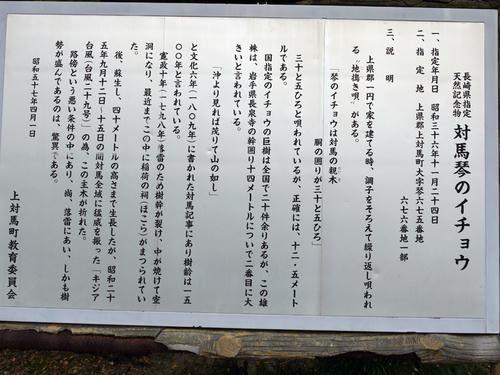 長崎県指定
天然記念物
対馬琴のイチョウ
一、指定年月日 昭和三十六年十一月二十四日
二、指定地 上県郡上対馬町大字琴六七五番地
六七六番地一部
三、説明
上県郡一円で家を建てる時、調子をそろえて繰り返し唄われ
る〝地搗き唄〟がある。
「琴のイチョウは対馬の親木
胴の囲りが三十と五ひろ」
三十と五ひろと唄われているが、正確には、十二・五メート
ルである。
国指定のイチョウの巨樹は全国で二十件余りあるが、この雄
株は、岩手県長泉寺の幹囲り十四メートルについで二番目に大
きいと言われている。
「沖より見れば茂りて山の如し」
と文化六年(一八〇九年)に書かれた対馬記事にあり樹齢は一五
〇〇年と言われている。
寛政十年(一七九八年)落雷のため樹幹が裂け、中が焼けて空
洞になり、最近までこの中に稲荷の祠(ほこら)がまつられてい
た。
後、蘇生し、四十メートルの高さまで生長したが、昭和二十
五年九月十二日~十五日の間対馬全域に猛威を振った「キジア
台風(台風二十九号)」の為、この主木が折れた。
路傍という悪い条件の中にあり、尚、落雷にあい、しかも樹
勢が盛んであるのは、驚異である。
昭和五十七年四月一日
上対馬町教育委員会